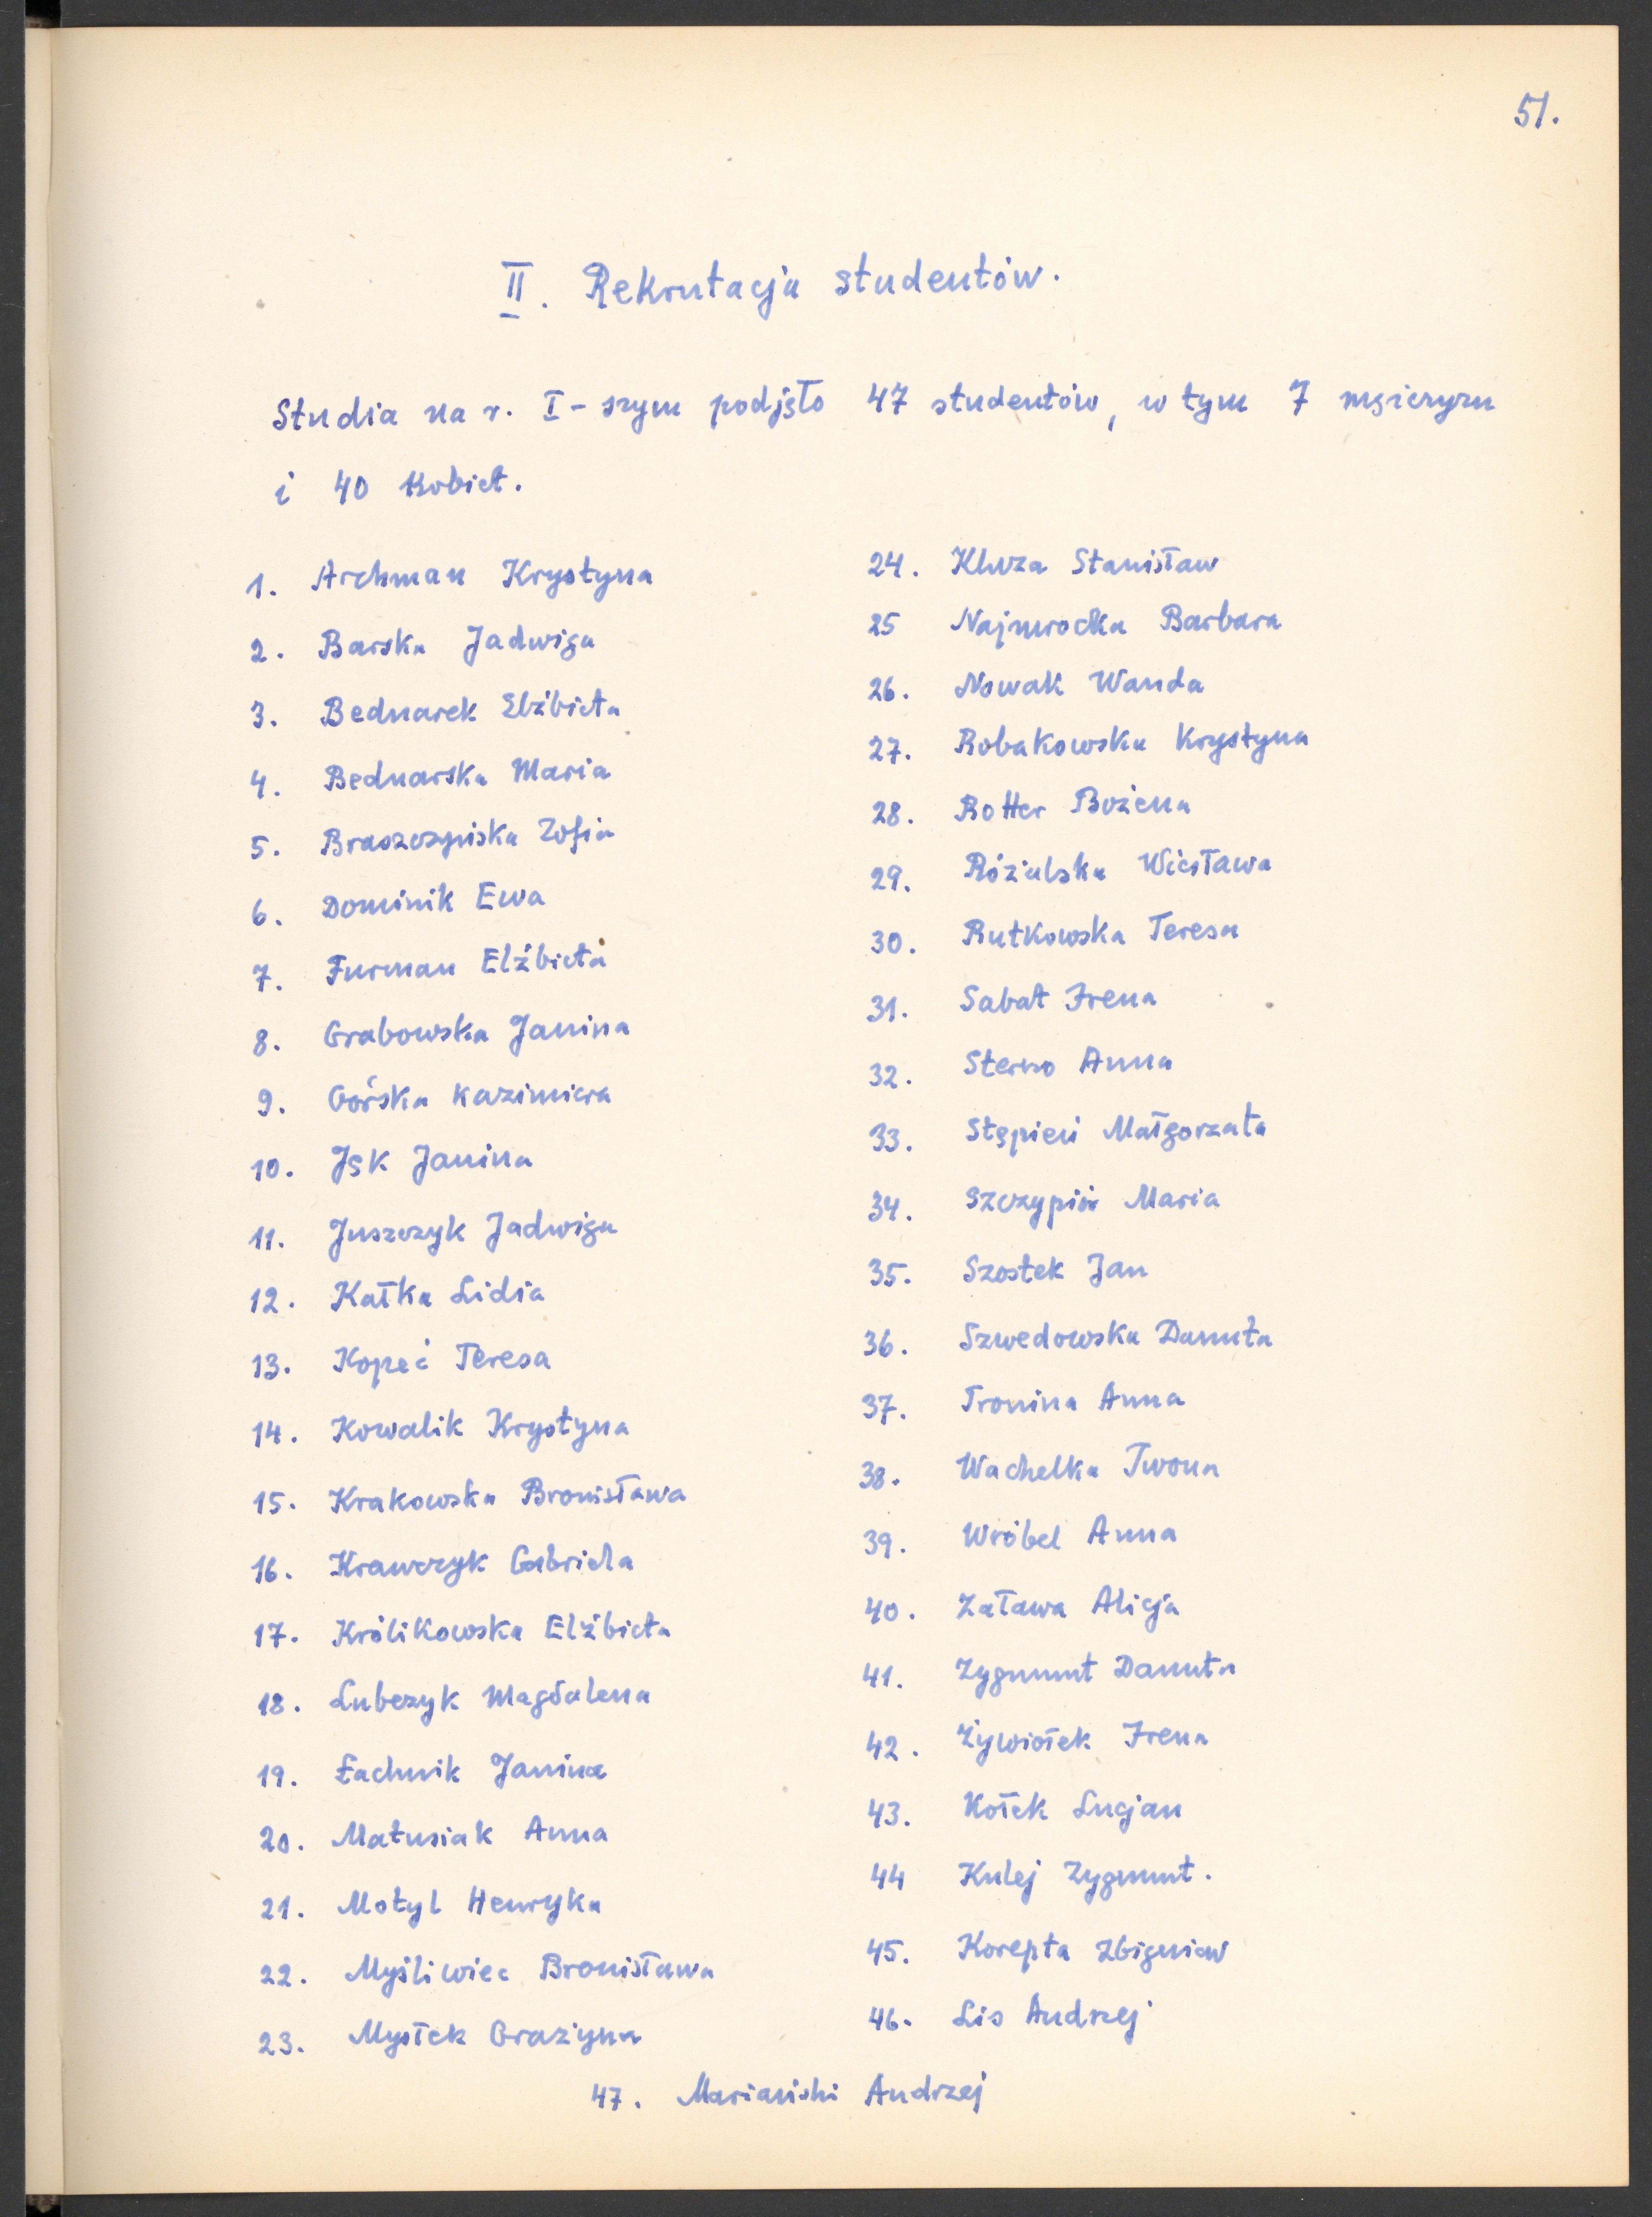 51.
II. Rekrutacja studentów.
Studia na r. I-szym podjęło 47 studentów, w tym 7 mężczyzn
i 40 kobiet.
1. Archman Krystyna
2. Barska Jadwiga
3. Bednarek Elżbieta
4. Bednarska Maria
5. Braszczyńska Zofia
6. Dominik Ewa
7. Furman Elżbieta
8. Grabowska Janina
9. Górska Kazimiera
10. Jęk Janina
11. Juszczyk Jadwiga
12. Kałka Lidia
13. Kopeć Teresa
14. Kowalik Krystyna
15. Krakowska Bronisława
16. Krawczyk Gabriela
17. Królikowska Elżbieta
18. Lubczyk Magdalena
19. Łachnik Janina
20. Matusiak Anna
21. Motyl Henryka
22. Myśliwiec Bronisława
23. Mysłek Grażyna
24. Kluza Stanisław
25 Najmrocka Barbara
26. Nowak Wanda
27. Robakowska Krystyna
28. Rotter Bożena
29. Różalska Wiesława
30. Rutkowska Teresa
31. Sabat Irena
32. Sterno Anna
33. Stępień Małgorzata
34. Szczypiór Maria
35. Szostek Jan
36. Szwedowska Danuta
37. Tronina Anna
38. Wachelka Iwona
39. Wróbel Anna
40. Zaława Alicja
41. Zygmunt Danuta
42. Żywiołek Irena
43. Kołek Lucjan
44 Kulej Zygmunt.
45. Korepta Zbigniew
46. Lis Andrzej
47. Mariański Andrzej